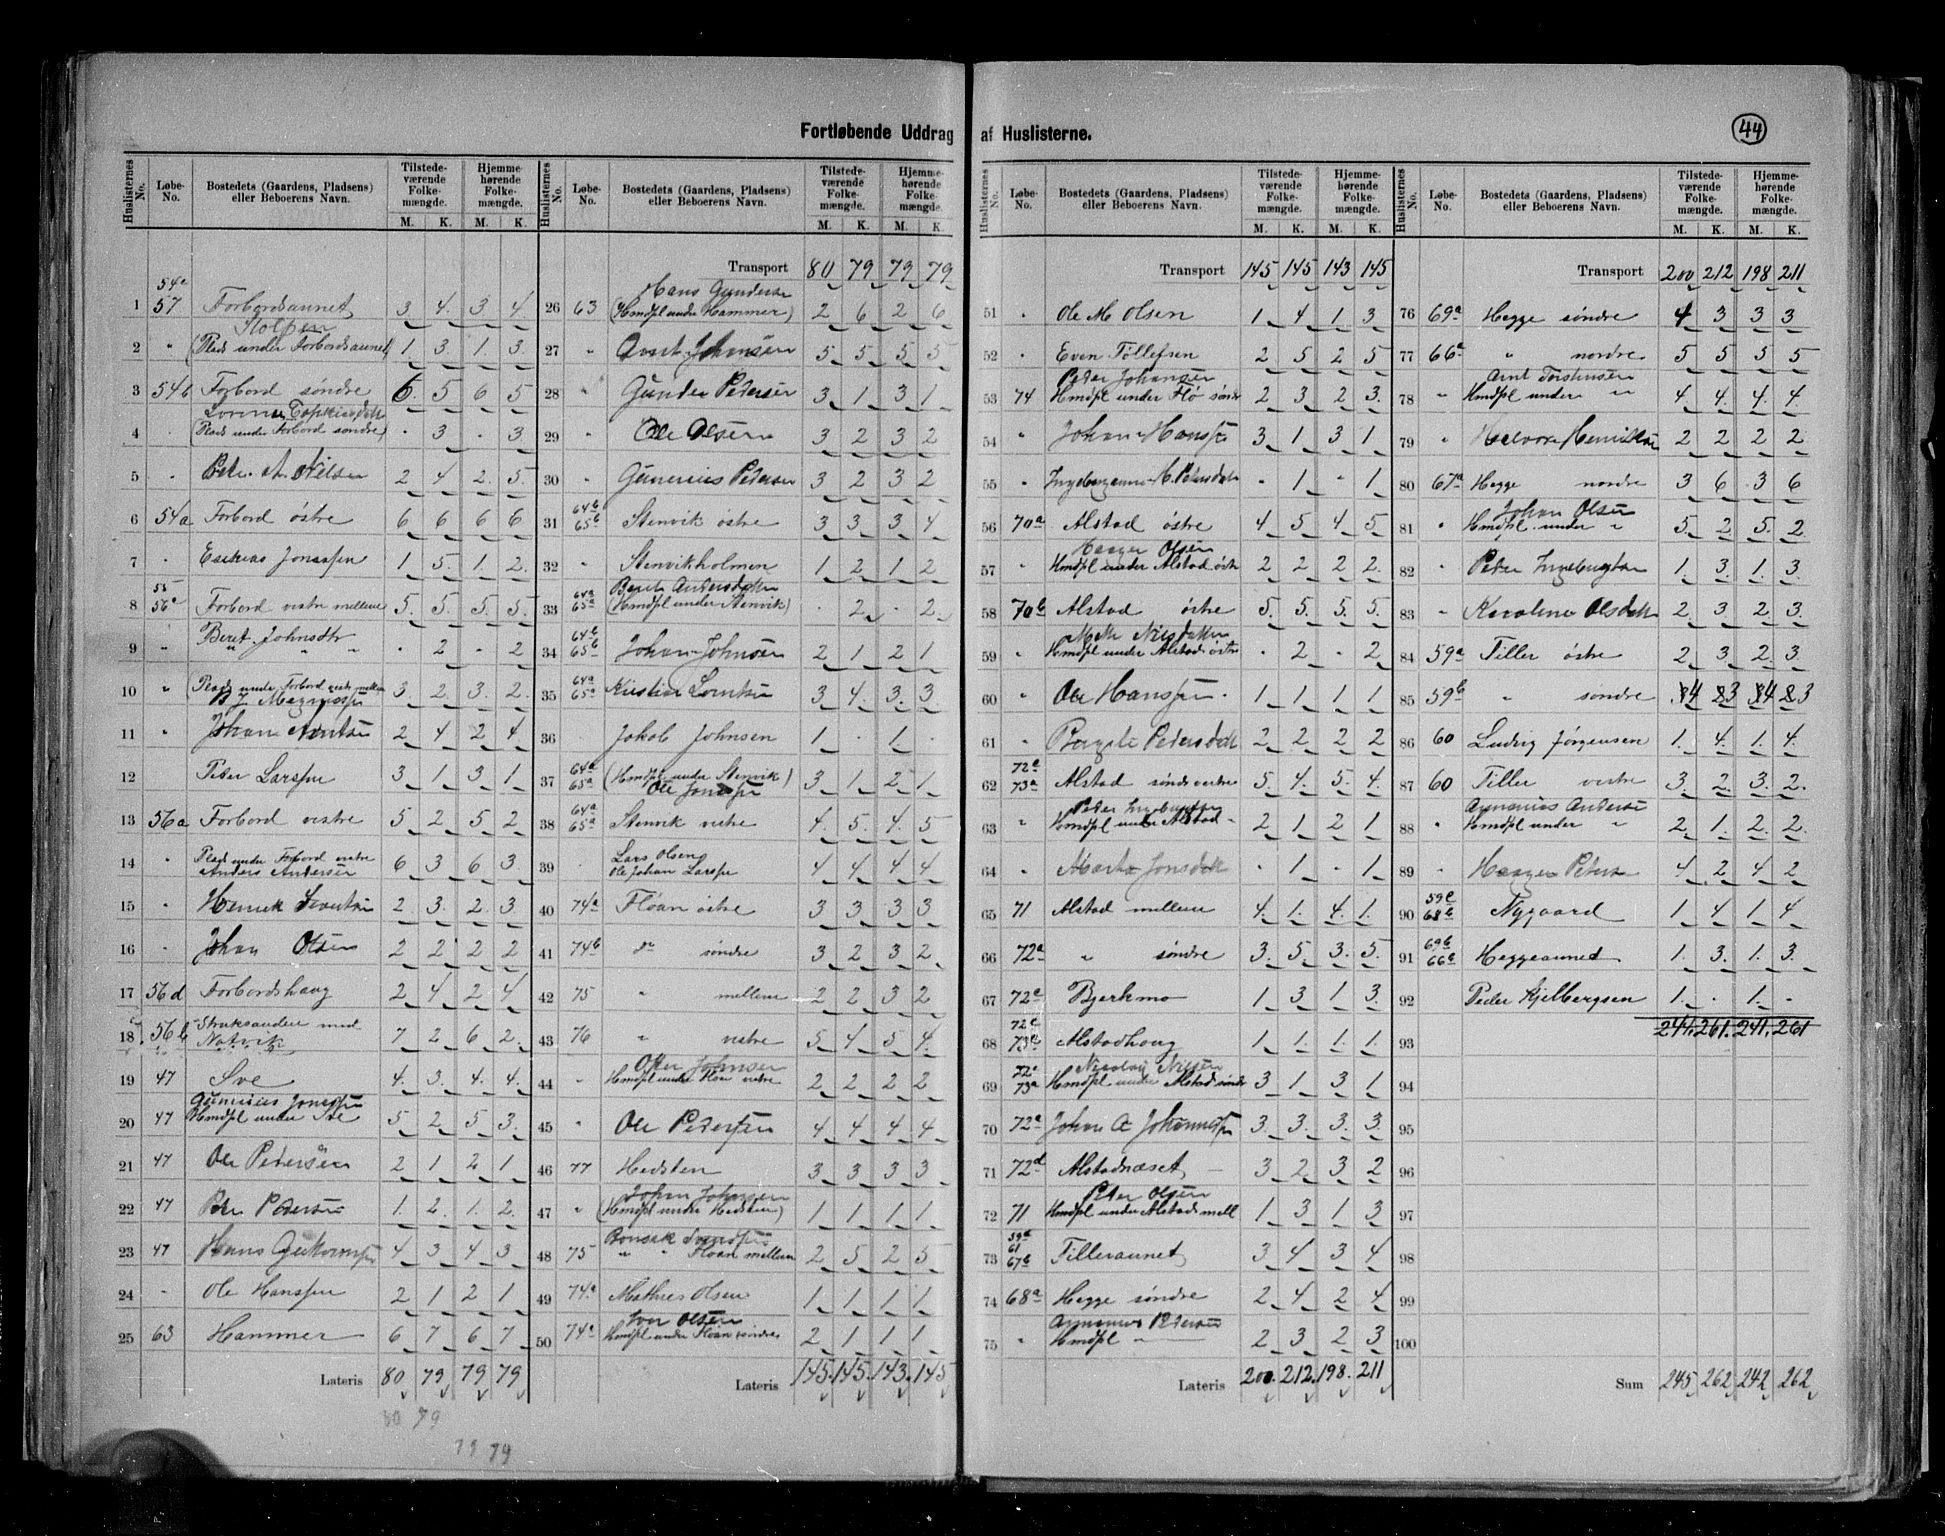 Fortløbende Uddrag af Huslisterne.
44
Huslisternes No. Løbe-No. Bostedets (Gaardens, Pladsens) eller Beboerens Navn. Tilstedeværende Folkemængde. M. K. Hjemmehørende Folkemængde. M. K.
1 54a 57 Forbordsaunet 3 4 3 4
2 " Stolpen (Plads under Forbordsaunet) 1 3 1 3
3 54b Forbord søndre 6 5 6 5
4 (Plads under Forbord søndre) - 3 - 3
5 Nilsen 2 4 2 5
6 54a Forbord østre 6 6 6 6
7 " Esekias Jonassen 1 5 1 2
8 55 56a (Forbord vestre mellem 5 5 5 5
9 " Beret Johnsdtr - 2 - 2
10 " Plads under Forbord vestre mellem 3 2 3 2
11 " Johan 2 4 2 4
12 Peter Larssen 3 1 3 1
13 56a Forbord vestre 5 2 5 2
14 " Plads under Forbord vestre Anders Andersen 6 3 6 3
15 " Henrik 2 3 2 3
16 " Johan Olsen 2 2 2 2
17 56d Forbordshaug 2 4 2 4
18 56b med Natvik 7 2 6 2
19 47 Sve 4 3 4 4
20 47 Gunerius Jonassen Hmdpl under Sve 5 2 5 3
21 47 Ole Pedersen 2 1 2 1
22 47 Pedersen 1 2 1 2
23 47 Hans 4 3 4 3
24 " Ole Hanssen 2 1 2 1
25 63 Hammer 6 7 6 7
Lateris 80 79 79 79
80 79
79 79
Huslisternes No. Løbe-No. Bostedets (Gaardens, Pladsens) eller Beboerens Navn. Tilstedeværende Folkemængde. M. K. Hjemmehørende Folkemængde. M. K.
Transport 80 79 79 79
26 63 Hans Gundersen (Hmdpl under Hammer) 2 6 2 6
27 " Arnt Johnsen 5 5 5 5
28 " Gunder Pedersen 3 1 3 1
29 " Ole Olsen 3 2 3 2
30 " Gunerius Pedersen 3 2 3 2
31 64b 65b Stenvik østre 3 3 3 4
32 " Stenvikholmen 1 2 1 2
33 64a 65a Berit Andersdatter (Hmdpl under Stenvik) - 2 - 2
34 64b 65b Johan Johnsen 2 1 2 1
35 64a 65a Kristian Lorntsen 3 4 3 3
36 Jakob Johnsen 1 - 1 -
37 64a 65a (Hmdpl under Stenvik) Ole Jonassen 3 1 2 1
38 64a 65a Stenvik vestre 4 5 4 5
39 Lars Olsen og Ole Johan Larssen 4 4 4 4
40 74a Floan østre 3 3 3 3
41 74b do søndre 3 2 3 2
42 75 " mellem 2 2 3 2
43 76 " vestre 5 4 5 4
44 " Johnsen Hmdpl under Floan vestre 2 2 2 2
45 " Ole Pedersen 4 4 4 4
46 77 Hedsten 3 3 3 3
47 " Johan Johnsen (Hmdpl under Hedsten) 1 1 1 1
48 75 " " Floan mellem 2 5 2 5
49 74a Mathies Olsen 1 1 1 1
50 74a Iver Olsen Hmdpl under Floan søndre 2 1 1 1
Lateris 145 145 143 145
Huslisternes No. Løbe-No. Bostedets (Gaardens, Pladsens) eller Beboerens Navn. Tilstedeværende Folkemængde. M. K. Hjemmehørende Folkemængde. M. K.
Transport 145 145 143 145
51 " Ole M Olsen 1 4 1 3
52 " Even Tøllefsen 2 5 2 5
53 74 Peder Johansen Hmdpl under Flo søndre 2 3 2 3
54 " Johan Hanssen 3 1 3 1
55 " - 1 - 1
56 70a Alstad østre 4 5 4 5
57 " Haagen Olsen Hmdpl under Alstad østre 2 2 2 2
58 70b Alstad østre 5 5 5 5
59 " Mette Nilsdatter Hmdpl under Alstad østre - 2 - 2
60 " Ole Hanssen 1 1 1 1
61 " Pedersdatt 2 2 2 2
62 72c 73a Alstad søndre vestre 5 4 5 4
63 " Peder Ingebrigtsen Hmdpl under Alstad " 2 1 2 1
64 " Marta Jonsdatt - 1 - 1
65 71 Alstad mellem 4 1 4 1
66 72a " søndre 3 5 3 5
67 72e Bjerkmo 1 3 1 3
68 72c 73b Alstadhaug 1 1 1 1
69 72c 73a Nikolai Nilsen Hmdpl under Alstad søndre 3 1 3 1
70 72a Johan A Johannessen 3 3 3 3
71 72d Alstadnæset 3 2 3 2
72 71 Peter Olsen Hmdpl under Alstad mell 1 3 1 3
73 59a 61 67b Tilleraunet 3 4 3 4
74 68a Hegge søndre 2 4 2 4
75 " Pedersen Hmdpl " 2 3 2 3
Lateris 200 212 198 211
Huslisternes No. Løbe-No. Bostedets (Gaardens, Pladsens) eller Beboerens Navn. Tilstedeværende Folkemængde. M. K. Hjemmehørende Folkemængde. M. K.
Transport 200 212 198 211
76 69a Hegge søndre 4 3 3 3
77 66a " nordre 5 5 5 5
78 " Arnt Torstensen Hmdpl under " 4 4 4 4
79 " Halvor Henriksen 2 2 2 2
80 67a Hegge nordre 3 6 3 6
81 " Johan Olsen Hmdpl under " 5 2 5 2
82 Peder Ingebrigtsen 1 3 1 3
83 " Karoline Olsdatt 2 3 2 3
84 59a Tiller østre 2 3 2 3
85 59b " søndre 4 3 4 3
86 60 Ludvig Jørgensen 1 4 1 4
87 60 Tiller vestre 3 2 3 2
88 " Andersen Hmdpl under " 2 1 2 2
89 " Haagen Petersen 4 2 4 2
90 59c 68b Nygaard 1 4 1 4
91 69b 66c Heggeaunet 1 3 1 3
92 Peder Kjelbergsen 1 - 1 -
93 244 261 241 261
94
95
96
97
98
99
100
Sum 245 262 242 262